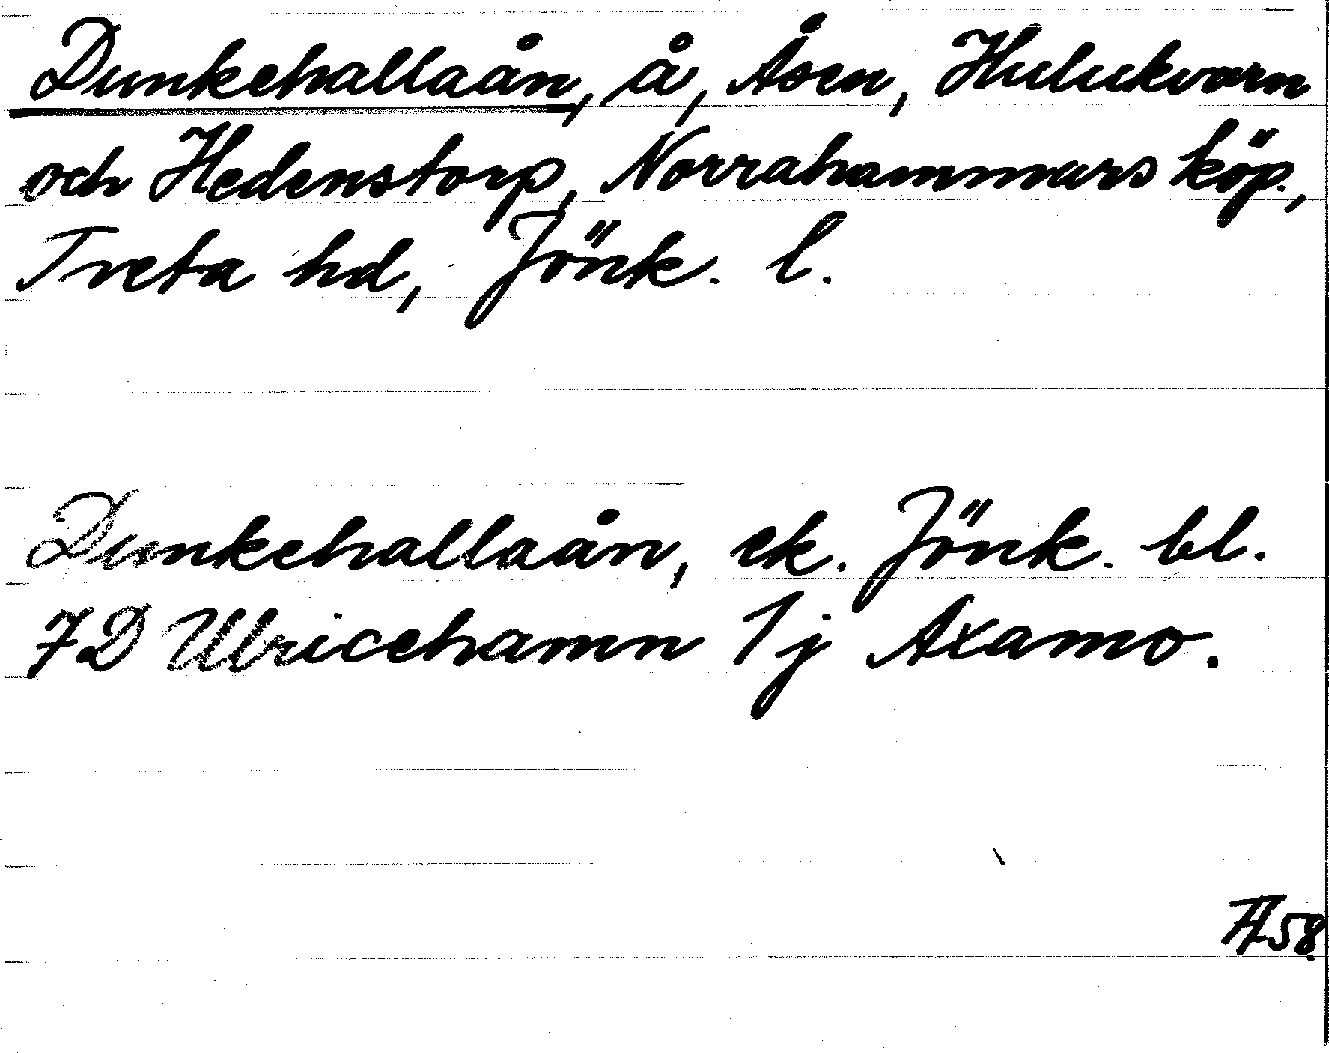 Dunkehallaån, å, Åsen, Hulukvarn
och Hedenstorp, Norrahammars köp.,
Tveta hd, Jönk. l.
Dunkehallaån, ek. Jönk. bl.
7D Ulricehamn 1j Axamo.
58.